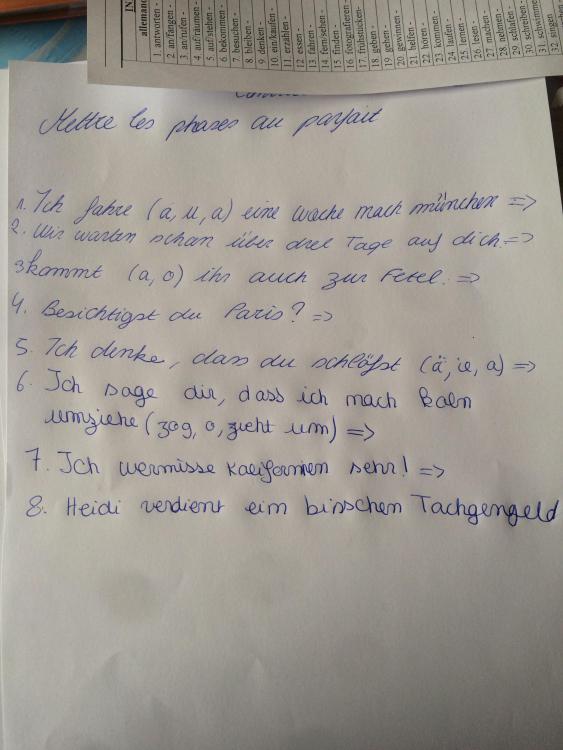 IN
allemand
1. antworten -
2. an/fangen -
3. an/rufen -
4. auf/räumen -
5. auf/stehen -
6. bekommen -
7. besuchen -
8. bleiben -
9. denken -
10. ein/kaufen -
11. erzählen -
12. essen -
13. fahren -
14. fern/sehen -
15. finden -
16. fotografieren -
17. frühstücken-
18. geben -
19. gehen -
20. gewinnen -
21. helfen -
22. hören -
23. kommen -
24. laufen -
25. lernen -
26. lesen -
27. machen -
28. nehmen -
29. schlafen -
30. schreiben -
31. schwimme
32. singen
Mettre les phases au parfait
1. Ich fahre (a, u, a) eine woche nach münchen =>
2. Wir warten schon über drei Tage auf dich =>
3 kommt (a, o) ihr auch zur Fete? =>
4. Besichtigst du Paris? =>
5. Ich denke, dass du schläfst (ä, ie, a) =>
6. Ich sage dir, dass ich nach Köln
umziehe (zog, o, zieht um) =>
7. Ich vermisse Kalifornien sehr! =>
8. Heidi verdient ein bisschen Tachgengeld